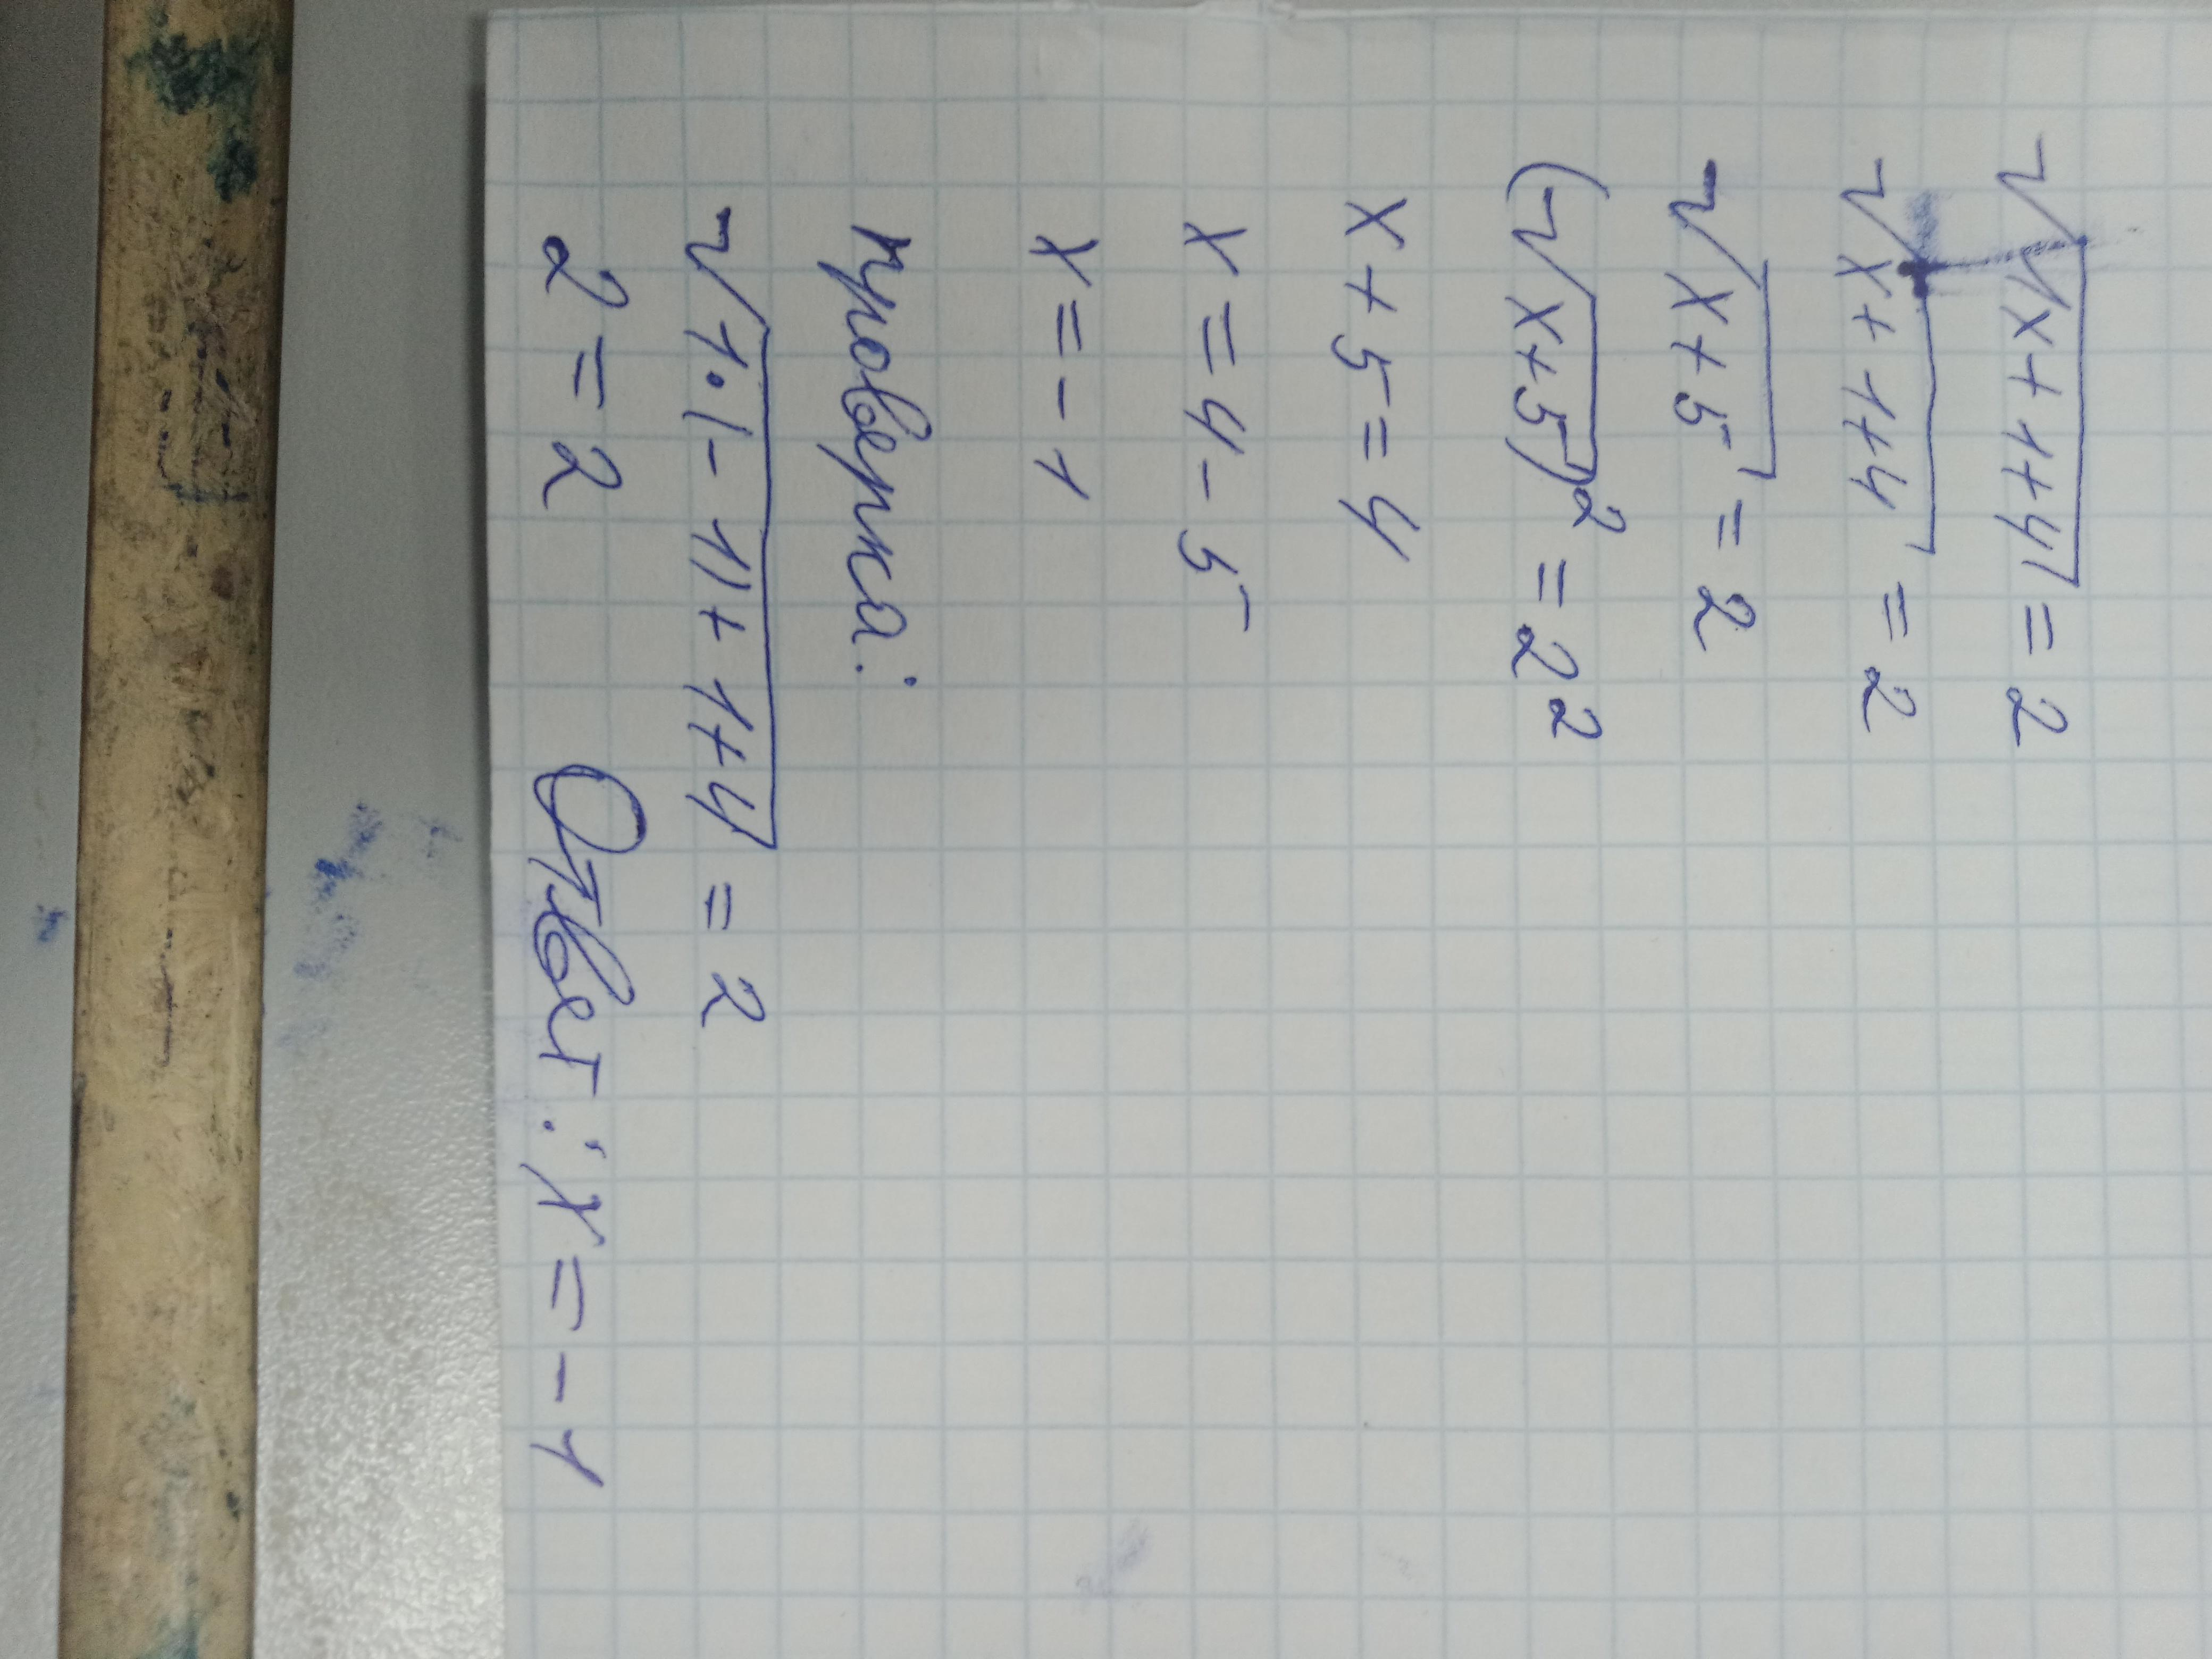 √1x+1+4 = 2
√x+1+4 = 2
√x+5 = 2
(√x+5)² = 2²
x+5=4
x=4-5
x=-1
проверка:
√1·(-1)+1+4 = 2
2=2 Ответ: x=-1